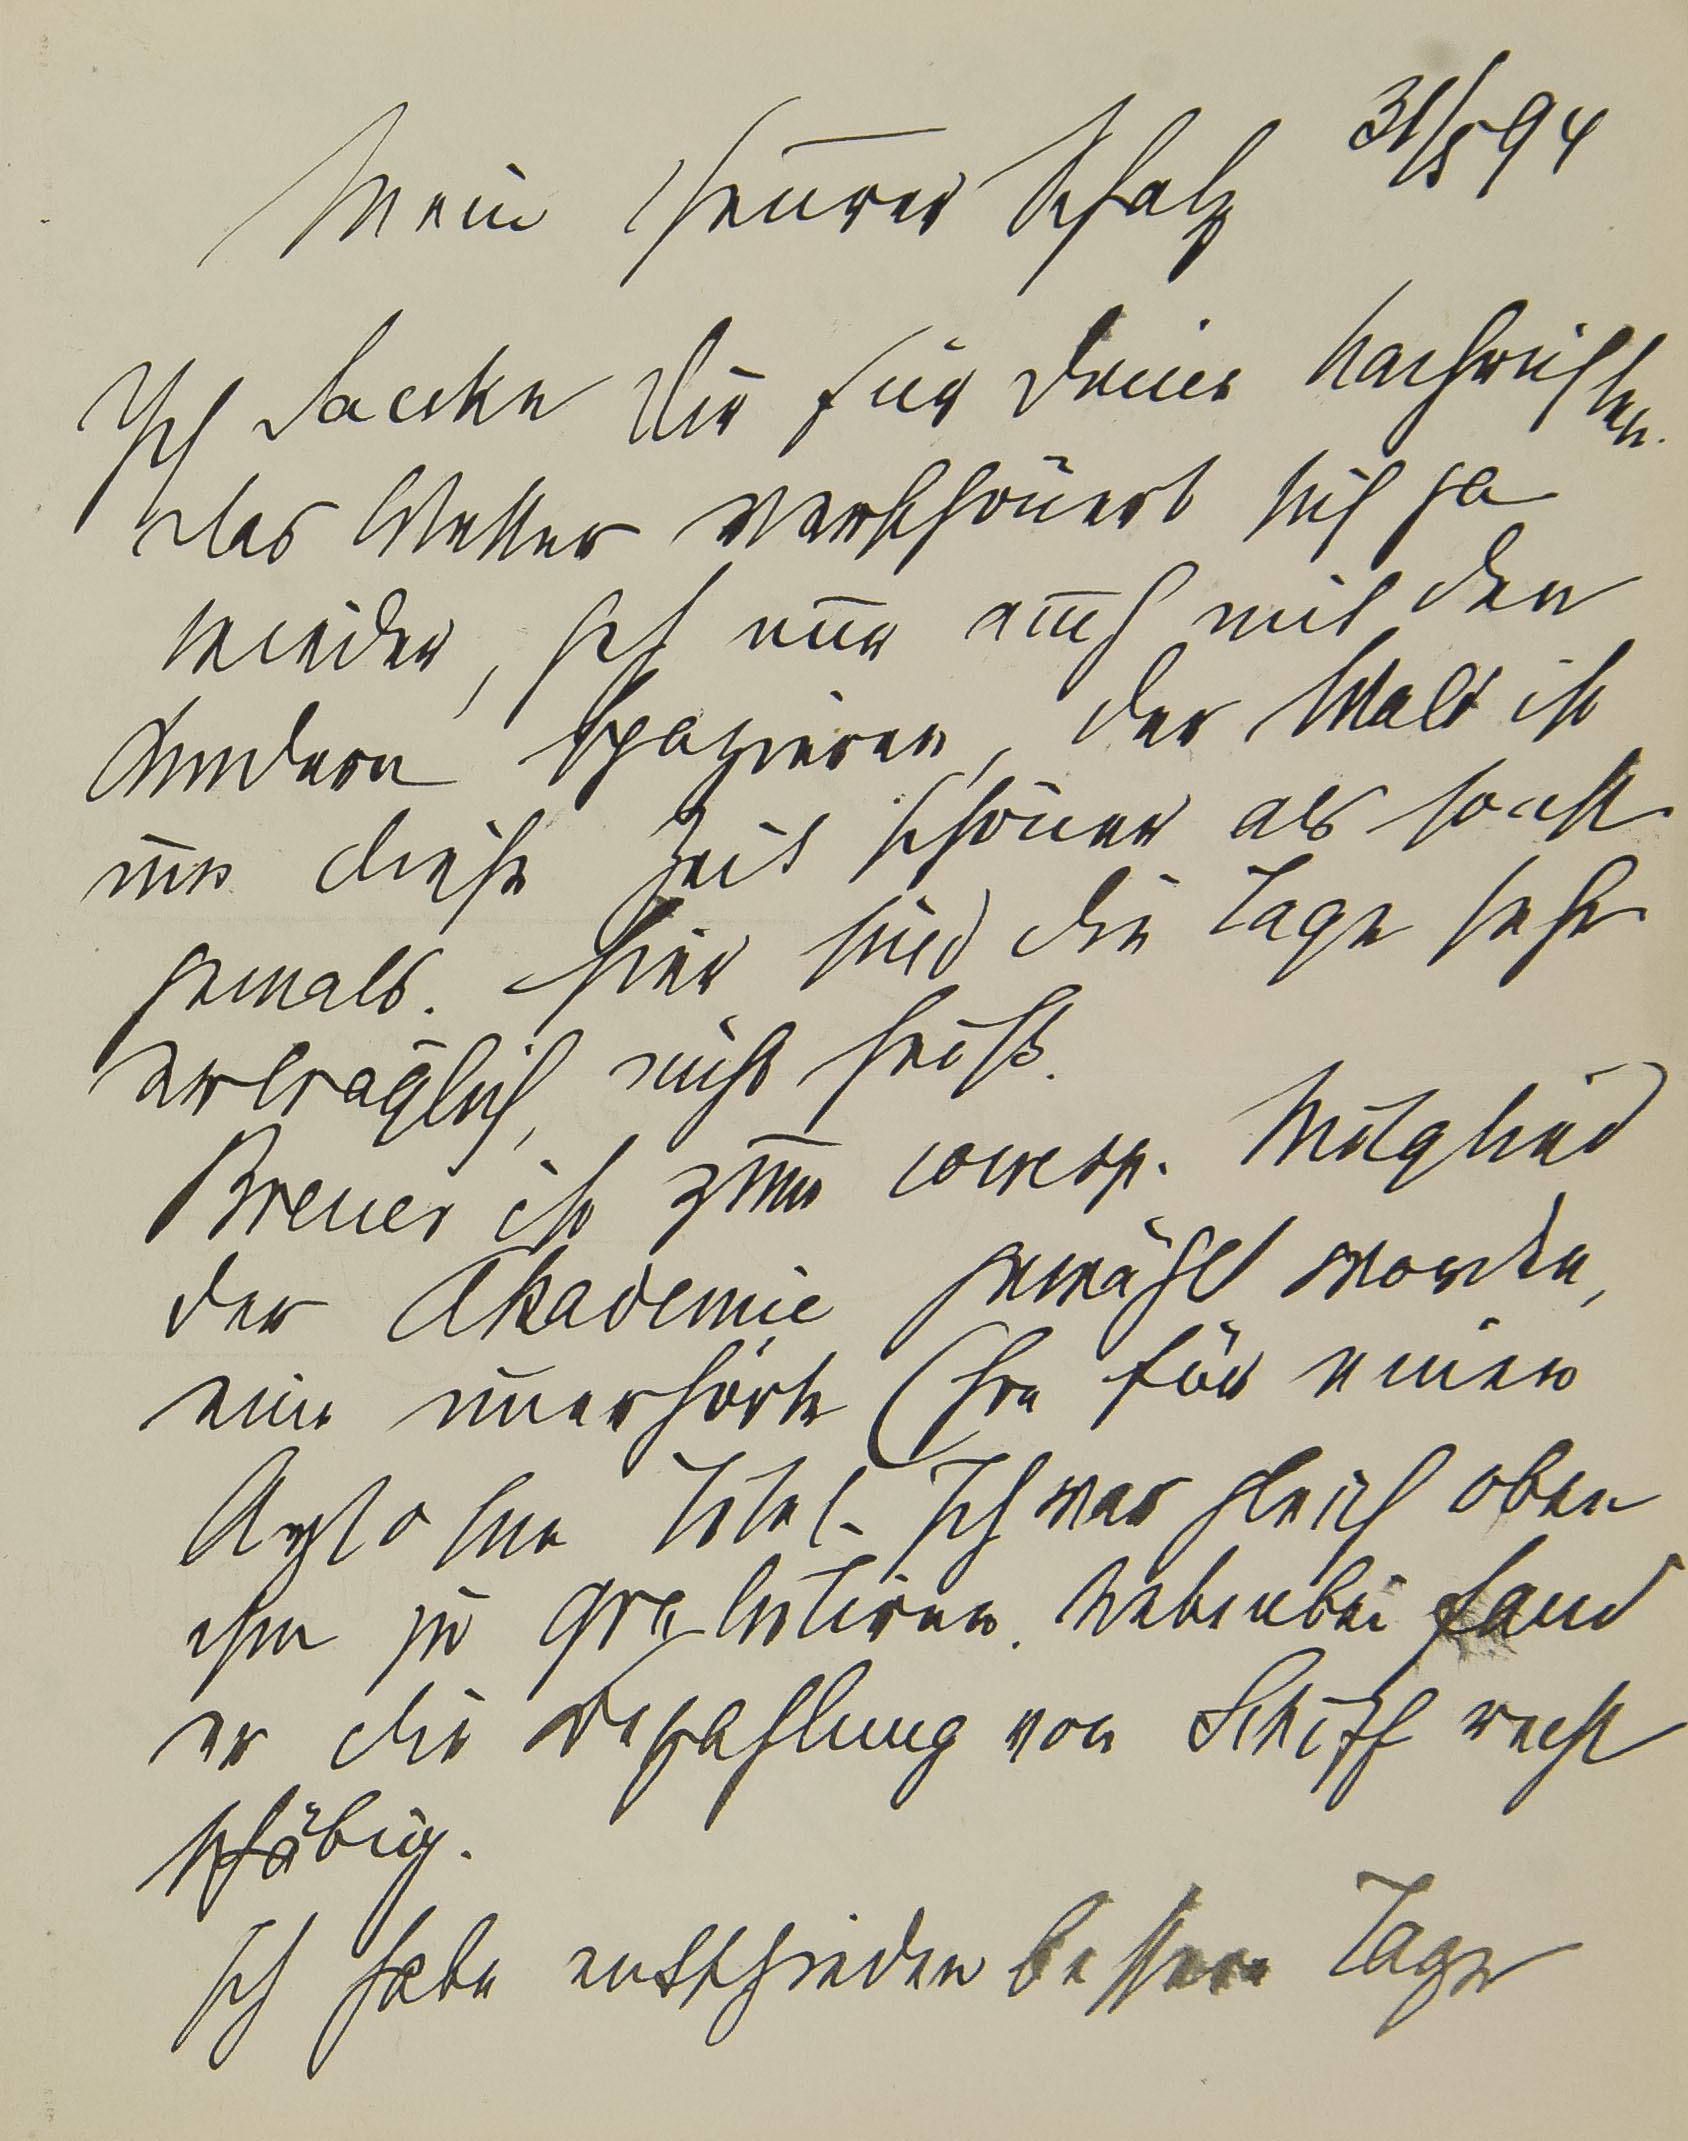 31/5 94
Mein theurer Schatz
Ich danke Dir für Deine Nachrichten.
Das Wetter verschönert sich ja
wieder, geh nur auch mit den
Kindern spaziren, der Wald ist
um diese Zeit schöner als sonst
jemals. Hier sind die Tage sehr
erträglich, nicht heiß.
Breuer ist zum corresp. Mitglied
der Akademie gewählt worden,
eine unerhörte Ehre für einen
Arzt ohne Titel. Ich war gleich oben
ihm zu gratuliren. Nebenbei fand
er die Bezahlung von Schiff recht
schäbig.
Ich habe entschieden bessere Tage